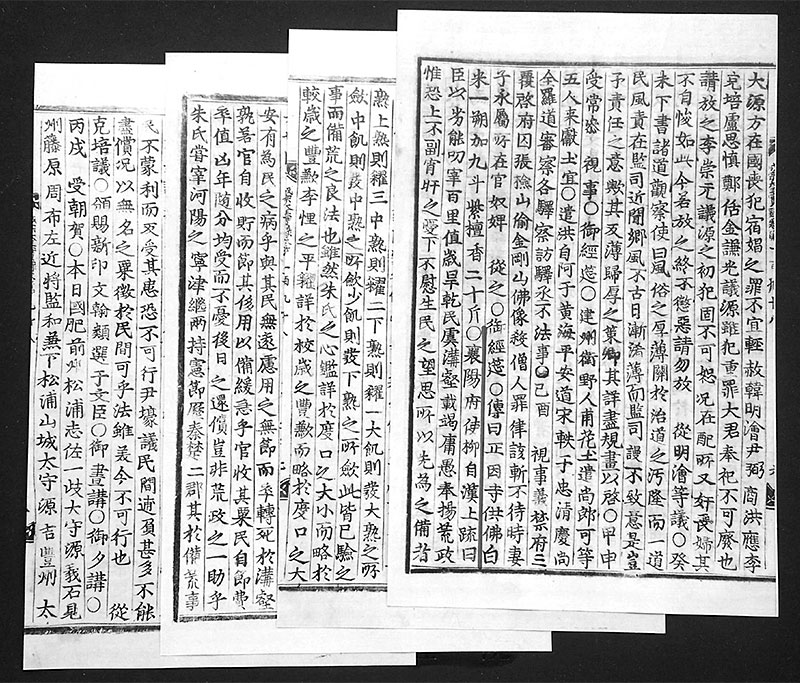 大源方在國喪犯宿娼之罪不宜輕赦韓明澮尹弼商洪應李
克培盧思愼鄭佸金謙光議源雖犯重罪大君奉祀不可廢也
請放之李崇元議源之初犯固不可恕况在配所又奸喪婦其
不自悛如此今若放之終不懲惡請勿放 從明澮等議○癸
未下書諸道觀察使曰風俗之厚薄關於治道之汚隆而一道
民風責在監司近聞鄉風不古日漸澆薄而監司謾不致意是豈
予責任之意歟其反薄歸厚之策卿其詳盡規畫以啓○甲申
受常參 視事○御經筵○建州衛野人甫花土遣尚郎可等
五人來獻土宜○遣洪自阿于黃海平安道宋軼于忠清慶尚
全羅道審察各驛察訪驛丞不法事○己酉 視事義禁府三
覆啓府囚張儉山偷金剛山佛像殺僧人罪律該斬不待時妻
子永屬所在官奴婢 從之○御經筵○傳曰正因寺供佛白
米一朔加九斗紫檀香二十斤○襄陽府使柳自漢上疏曰
臣以劣能叨宰百里值歲旱乾民虞溝壑載竭庸愚奉揚荒政
惟恐上不副宵旰之憂下不慰生民之望思所以先為之備者
熟上熟則糴三中熟則糴二下熟則糴一大飢則發大熟之所
斂中飢則發中熟之所斂少飢則發下熟之所斂此皆已驗之
事而備荒之良法也雖然朱氏之心鑑詳於度口之大小而略於
較歲之豐歉李悝之平糴詳於校歲之豐歉而略於度口之大
安有為民之病乎與其民無遠慮用之無節而卒轉死於溝壑
孰若官自收貯而節其侈用以備緩急乎官收其粟民自節費
平值凶年隨分均受而不憂後日之還償豈非荒政之一助乎
朱氏嘗宰河陽之寧津繼兩持憲節歷秦楚二郡其於備荒事
民不蒙利而反受其患恐不可行尹壕議民間逋負甚多不能
盡償况以無名之粟徵於民間可乎法雖美今不可行也 從
克培議○頒賜新印文翰類選于文臣○御晝講○御夕講○
丙戌 受朝賀○本日國肥前州松浦志佐一歧大守源義石見
州藤原周布左近將監和兼下松浦山城太守源吉豐州太